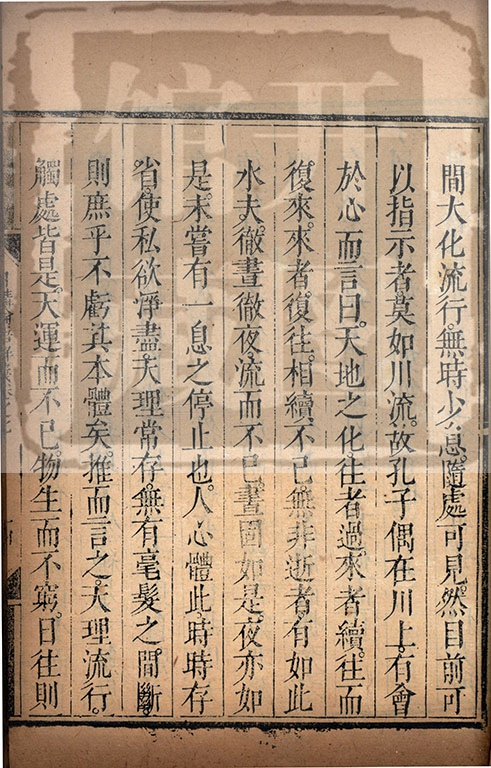 間大化流行。無時少息。隨處可見。然目前可
以指示者。莫如川流。故孔子偶在川上。有會
於心而言曰。天地之化。往者過。來者續。往而
復來。來者復往。相續不已。無非逝者。有如此
水夫。徹晝徹夜。流而不已。晝固如是。夜亦如
是。未嘗有一息之停止也。人心體此。時時存
省。使私欲淨盡。天理常存。無有毫髮之間斷。
則庶乎不虧其本體矣。推而言之。天理流行。
觸處皆是。天運而不已。物生而不窮。日往則